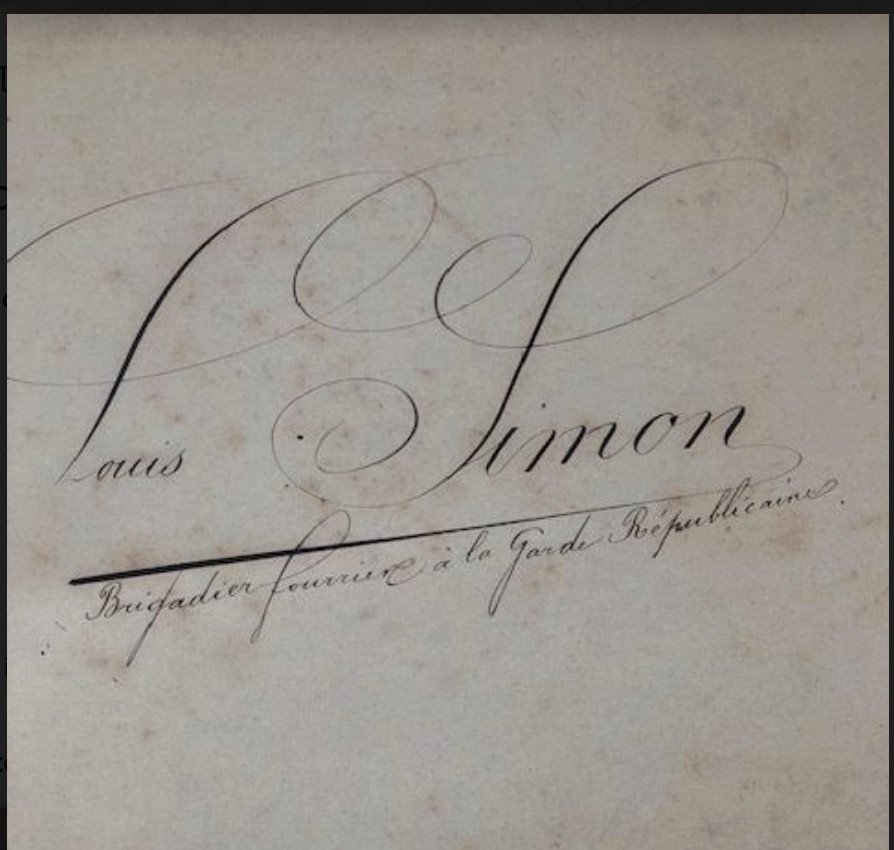 Louis Simon
Brigadier fourrier à la Garde Républicaine.